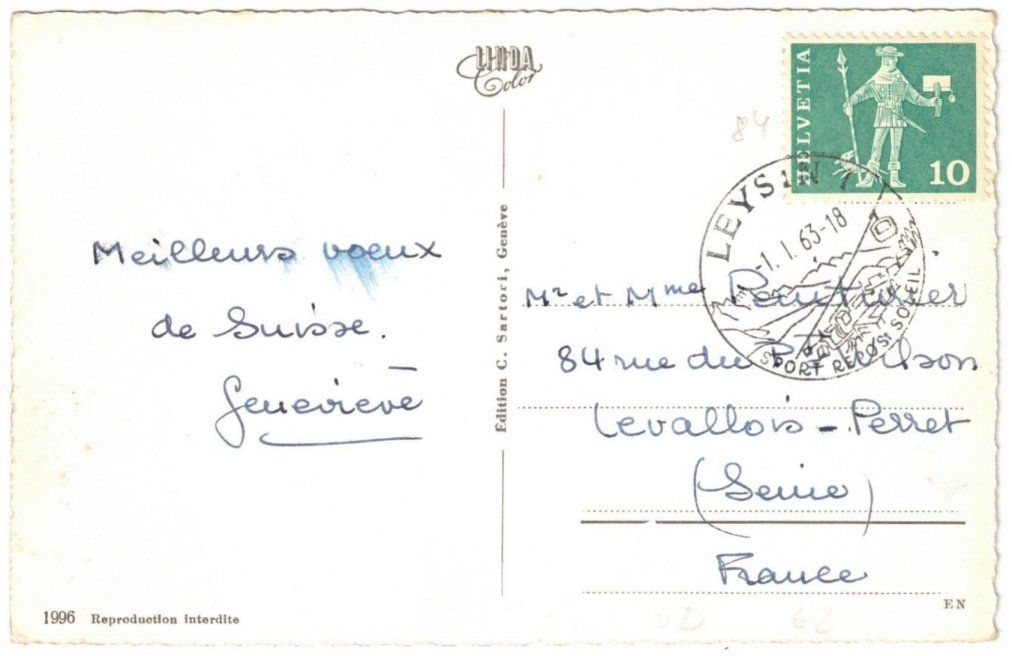 LINDA
Color
HELVETIA
10
84
LEYSIN 1
-1. I. 63-18
SPORT REPOS SOLEIL
Meilleurs voeux
de Suisse.
Geneviève
Édition C. Sartori, Genève
Mr et Mme
84 rue du Pt Wilson
Levallois-Perret
(Seine)
France
1996 Reproduction interdite
EN
VD 62